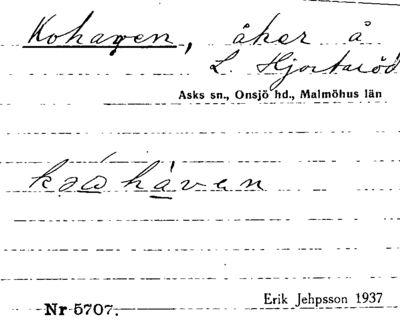 Kohagen, åker å
L. Hjortaröd
Asks sn., Onsjö hd., Malmöhus län
håven
Nr 5707.
Erik Jehpsson 1937